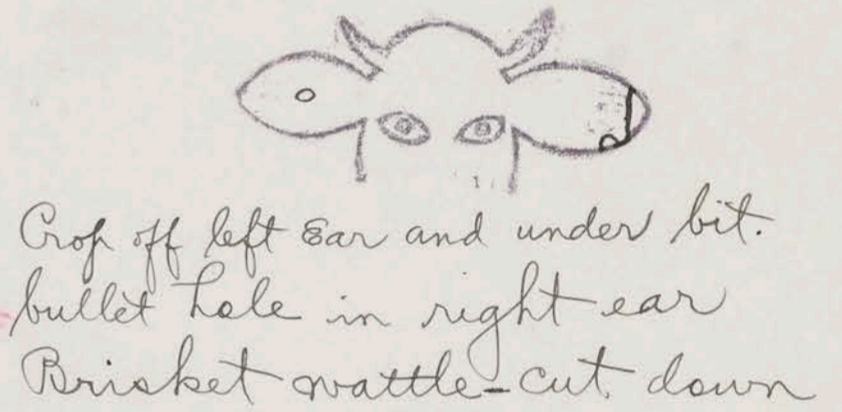 Crop off left Ear and under bit.
bullet hole in right ear
Brisket wattle-cut down